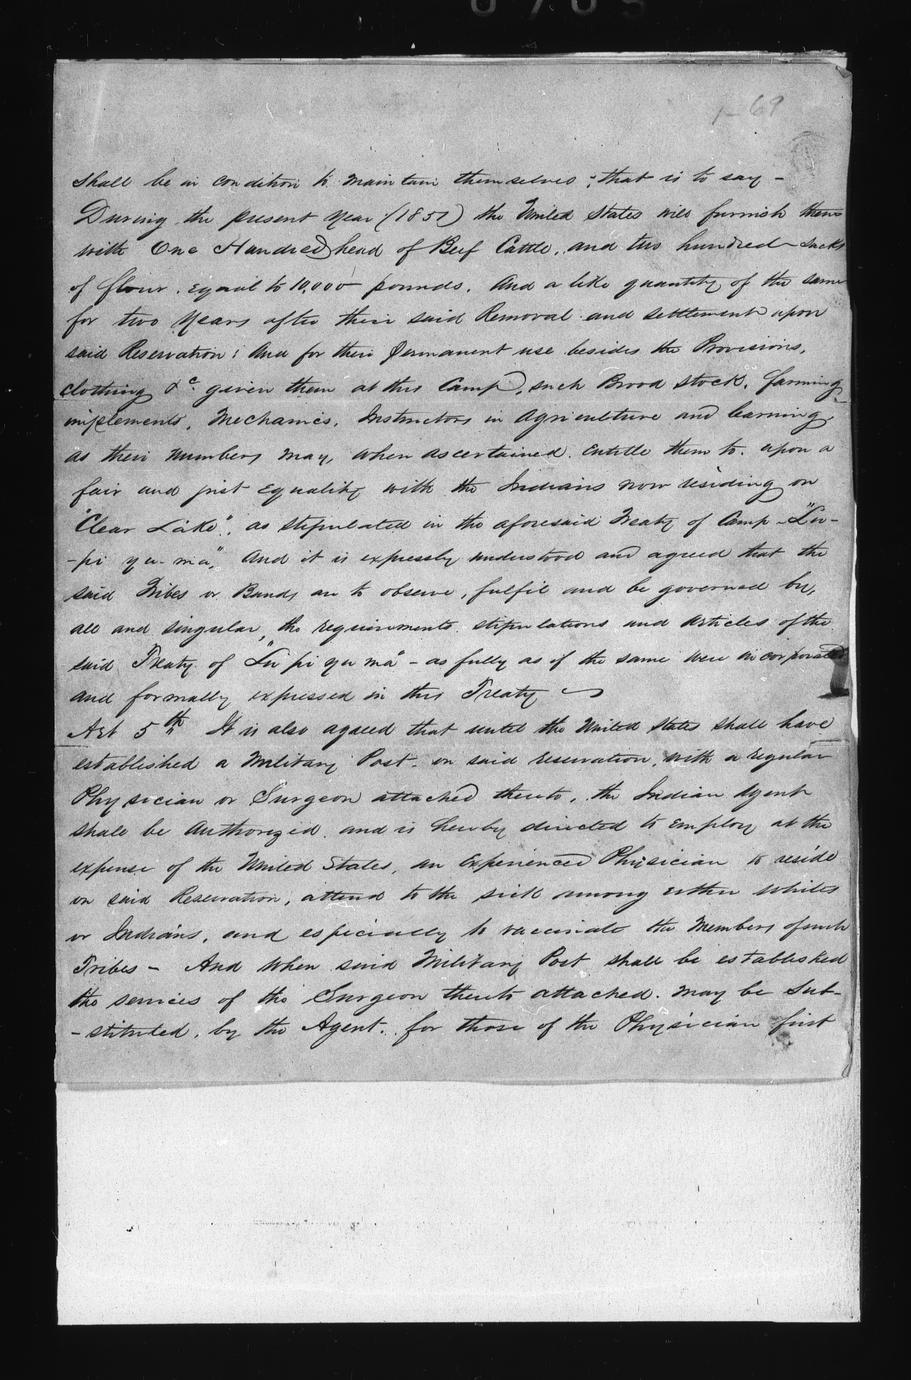 1-69
shall be in condition to maintain themselves; that is to say -
During the present year (1851) the United States will furnish them
with One Hundred head of Beef Cattle, and two hundred sacks
of flour, equal to 10,000 pounds, And a like quantity of the same
for two years after their said Removal and settlement upon
said Reservation; And for their permanent use besides the Provisions,
clothing &c given them at this Camp, such Brood stock, farming
implements, Mechanics, Instructors in agriculture and learning,
as their numbers may, when ascertained, entitle them to, upon a
fair and just equality with the Indians now residing on
"Clear Lake", as stipulated in the aforesaid Treaty of Camp "Lu-
-pi yu-ma," And it is expressly understood and agreed that the
said Tribes or Bands are to observe, fulfil and be governed by,
all and singular, the requirements, stipulations and articles of the
said Treaty of "Lu pi yu ma" - as fully as if the same were incorporated
and formally expressed in this Treaty
Art 5th It is also agreed that until the United States shall have
established a Military Post, on said reservation, with a regular
Physician or Surgeon attached thereto, the Indian Agent
shall be authorized, and is hereby directed to employ at the
expense of the United States, an Experienced Physician to reside
on said Reservation, attend to the sick among either whites
or Indians, and especially to vaccinate the members of such
Tribes - And when said Military Post shall be established
the services of the Surgeon thereto attached, may be sub-
-stituted, by the Agent, for those of the Physician first